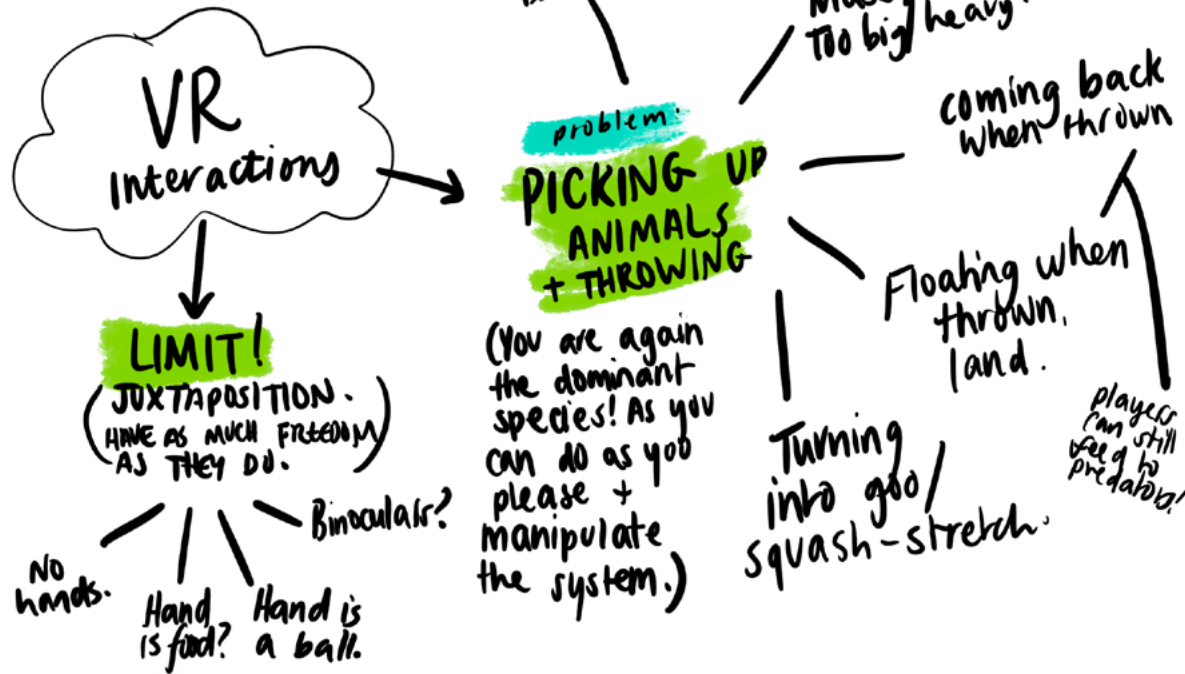 VR
Interactions
LIMIT!
(JUXTAPOSITION.
HAVE AS MUCH FREEDOM
AS THEY DO.)
No
hands.
Hand
is food?
Hand is
a ball.
Binoculars?
problem:
PICKING UP
ANIMALS
+ THROWING
(You are again
the dominant
species! As you
can do as you
please +
manipulate
the system.)
Too big/heavy
coming back
when thrown
Floating when
thrown,
land.
players
can still
feed to
predators!
Turning
into goo/
squash-stretch.